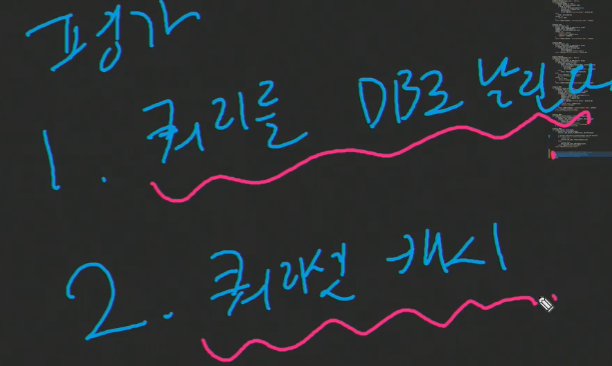 평가
1. 쿼리를 DB로 날린다
2. 쿼리셋 캐시